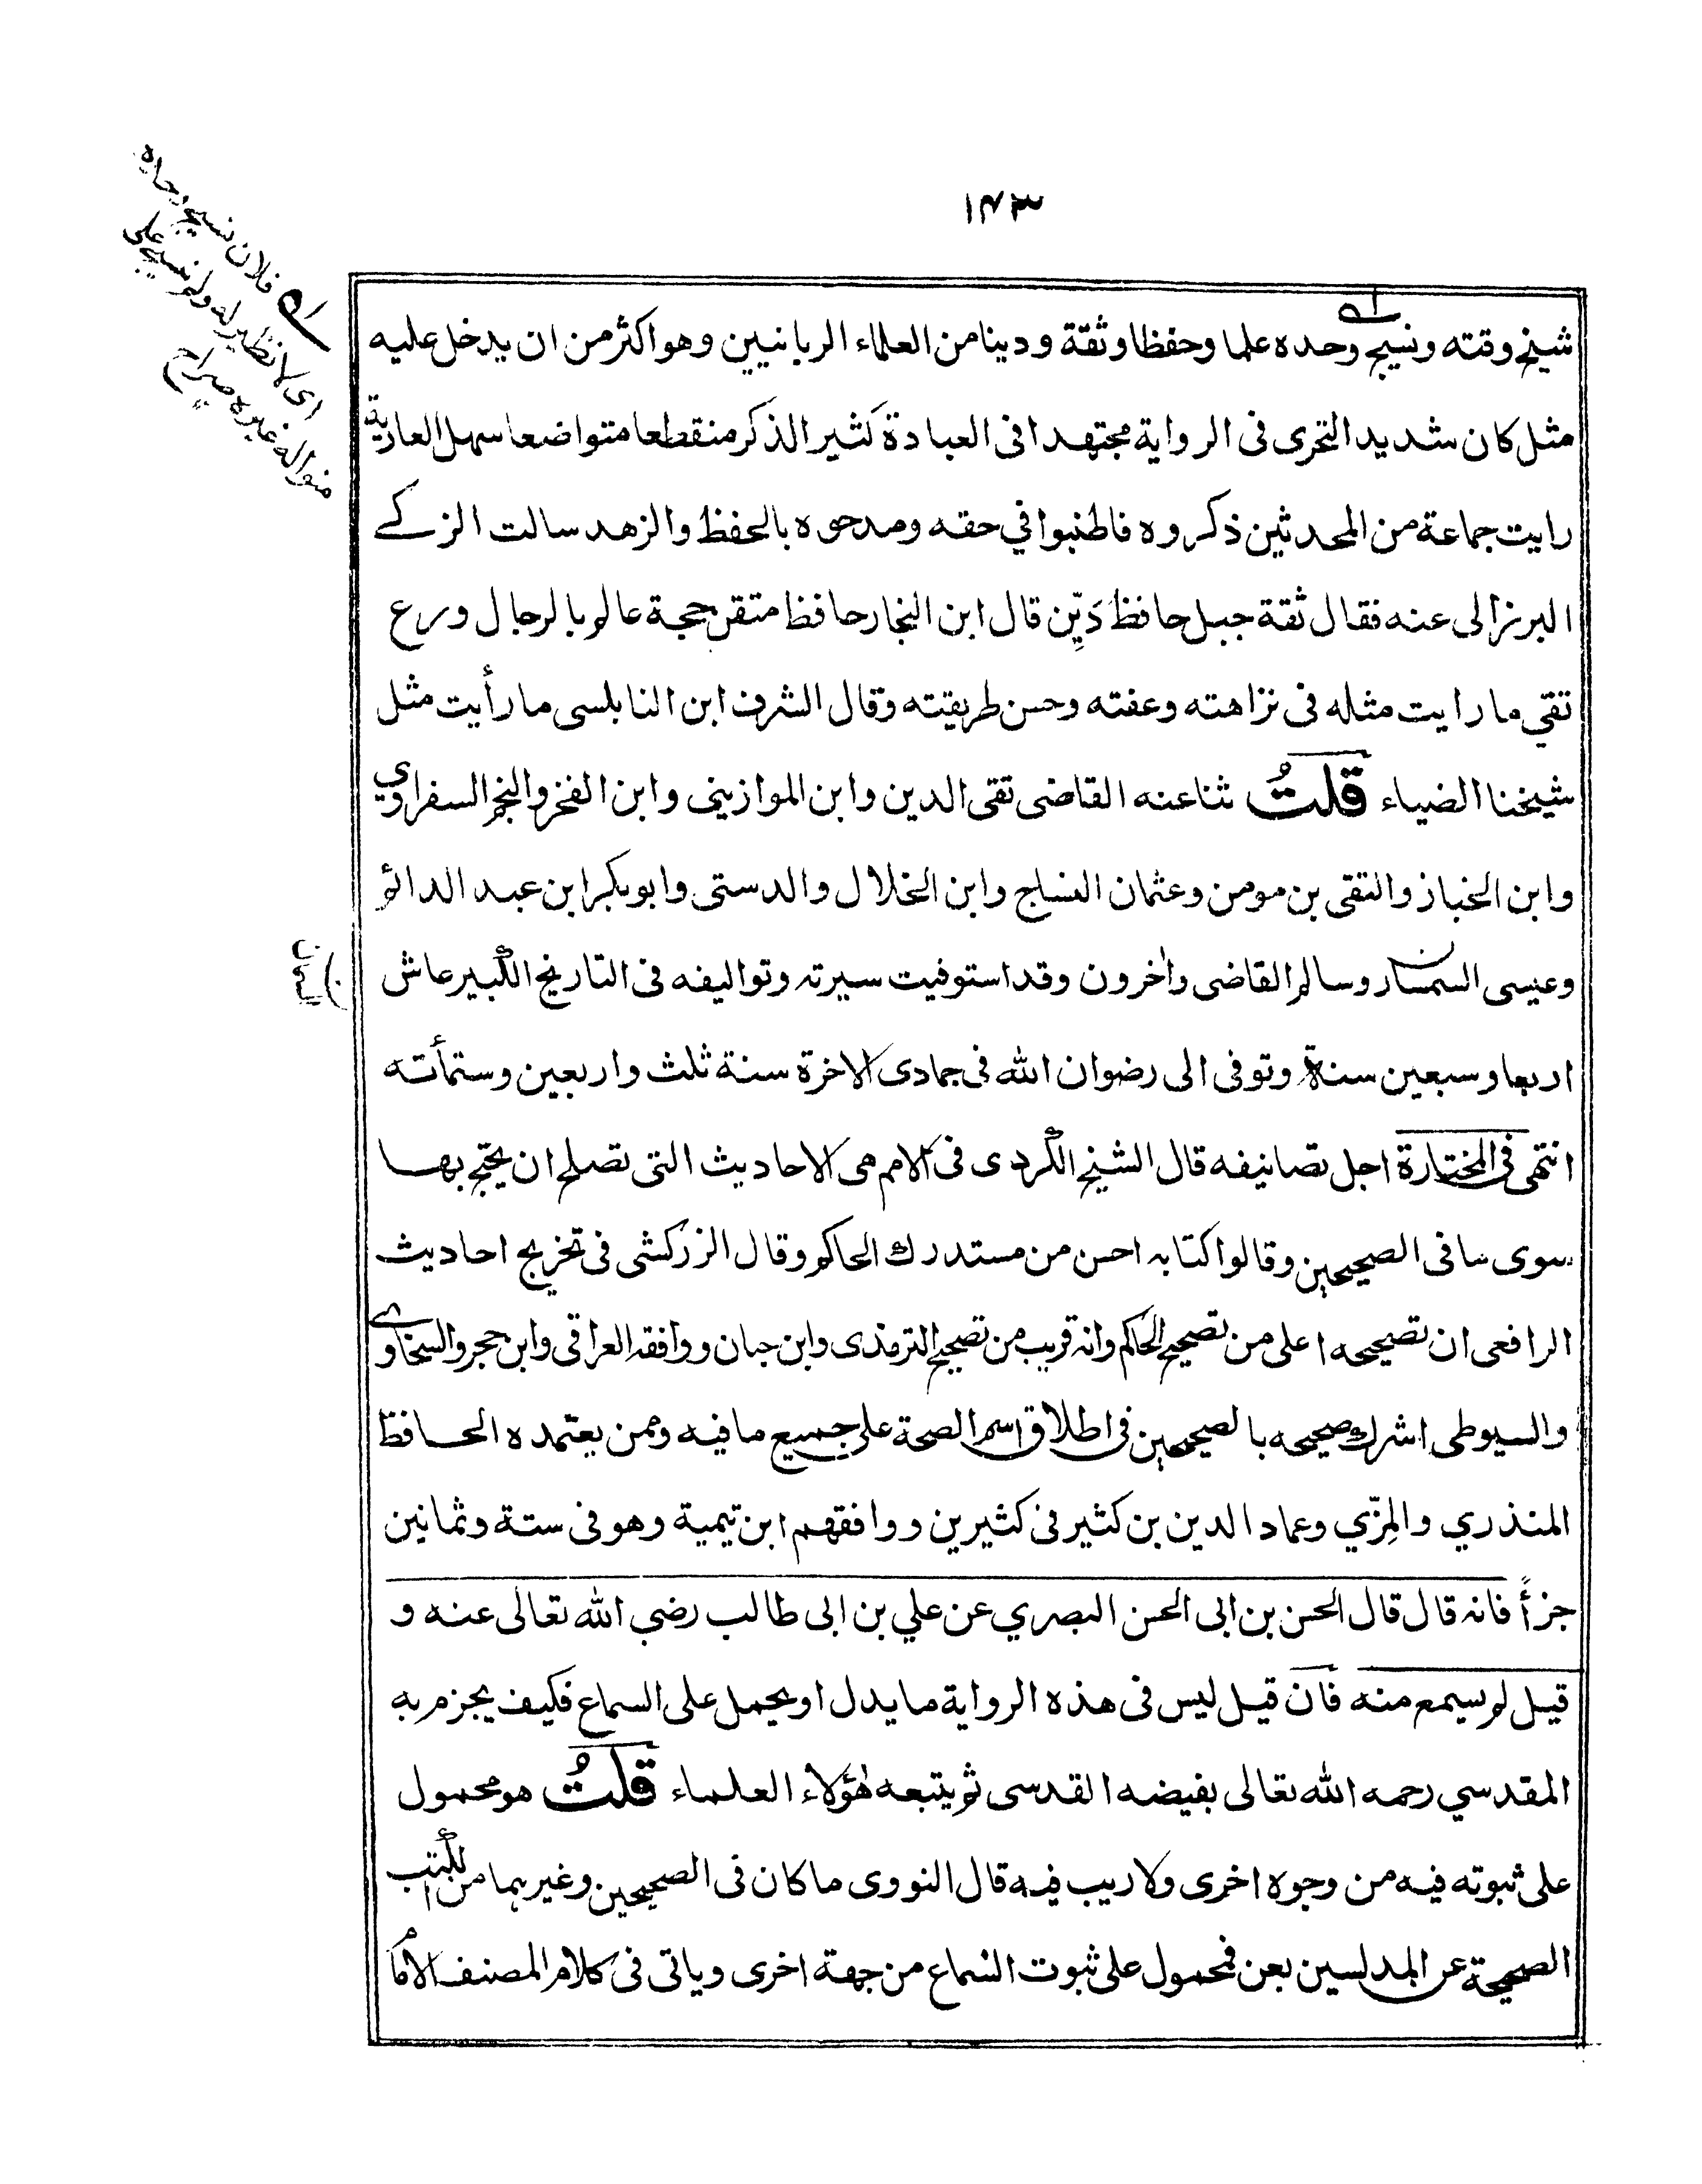 ١٤٣
شيخ وقته ونسيج وحده علما وحفظا وثقة ودينا من العلماء الربانيين وهو اكثر من ان يدخل عليه
مثل كان شديد التحرى فى الرواية مجتهدا فى العبادة كثير الذكر منقطعا متواضعا سهل العارية
رايت جماعة من المحدثين ذكروه فاطنبوا في حقه ومدحوه بالحفظ والزهد سالت الزكے
البرزالى عنه فقال ثقة جبل حافظ دَيِّن قال ابن النجار حافظ متقن حجة عالم بالرجال ورع
تقي ما رايت مثله فى نزاهته وعفته وحسن طريقته وقال الشرف ابن النابلسى ما رأيت مثل
شيخنا الضياء قلتُ ثنا عنه القاضى تقى الدين وابن الموازينى وابن الفخر والنجم السفراوي
وابن الخباز والتقى بن مومن وعثمان النساج وابن الخلال والدستى وابو بكر ابن عبد الدائم
وعيسى السمسار وسالم القاضى واٰخرون وقد استوفيت سيرته وتواليفه فى التاريخ الكبير عاش
اربعا وسبعين سنة وتوفى الى رضوان الله فى جمادى الاخرة سنة ثلث واربعين وستمأته
انتهى فى المختارة اجل تصانيفه قال الشيخ الكردى فى الامم هى الاحاديث التى تصلح ان يحتج بها
سوى ما فى الصحيحين وقالوا كتابه احسن من مستدرك الحاكم وقال الزركشى فى تخريج احاديث
الرافعى ان تصحيحه اعلى من تصحيح الحاكم وانه قريب من تصحيح الترمذى وابن حبان ووافقه العراقى وابن حجر والسخاوے
والسيوطى اشرك صحيحه بالصحيحين فى اطلاق اسم الصحة على جميع ما فيه وممن يعتمده الحافظ
المنذري والمِزّي وعماد الدين بن كثير فى كثيرين ووافقهم ابن تيمية وهو فى ستة وثمانين
جزأً فانه قال قال الحسن بن ابى الحسن البصري عن علي بن ابى طالب رضي الله تعالى عنه و
قيل لم يسمع منه فان قيل ليس فى هذه الرواية ما يدل او يحمل على السماع فكيف يجزم به
المقدسي رحمه الله تعالى بفيضه القدسى ثم يتبعه هٰؤلاء العلماء قلتُ هو محمول
على ثبوته فيه من وجوه اخرى ولا ريب فيه قال النووى ما كان فى الصحيحين وغيرهما من الكتب
الصحيحة عن المدلسين بعن فمحمول على ثبوت السماع من جهة اخرى وياتى فى كلام المصنف الامام
فلان نسيج وحده
اى لا نظير له ولم ينسج على
منواله غيره صراح